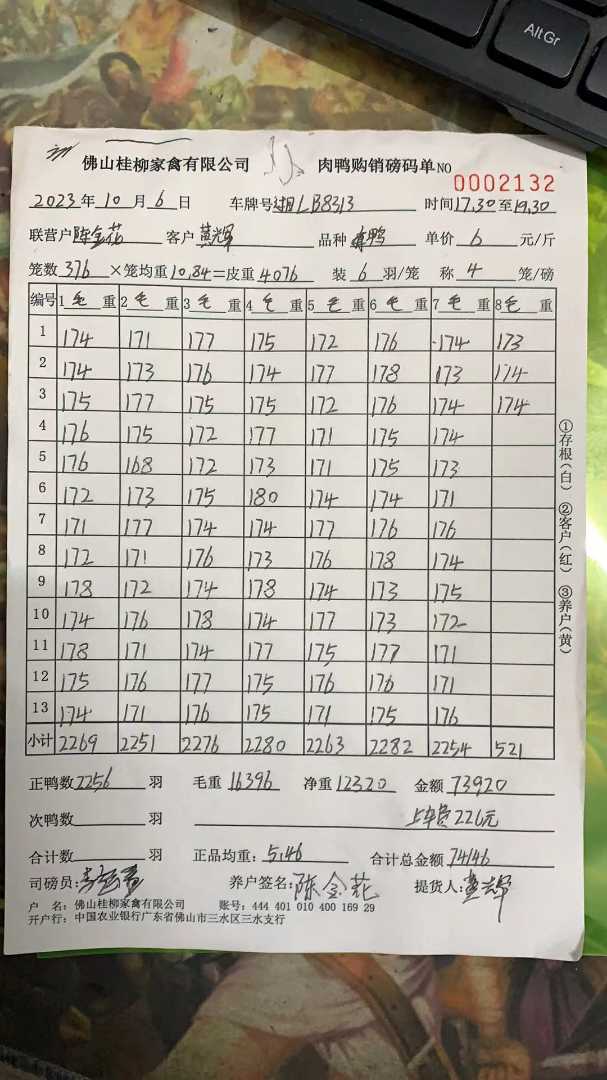 AltGr
佛山桂柳家禽有限公司 肉鸭购销磅码单NO 0002132
2023年10月6日 车牌号湘LB8313 时间17.30至19.30
联营户陈金花 客户黄辉 品种 鸭 单价6元/斤
笼数376×笼均重10.84=皮重4076 装6羽/笼 称4笼/磅
编号 1毛重 2毛重 3毛重 4毛重 5毛重 6毛重 7毛重 8毛重
1 174 171 177 175 172 176 174 173
2 174 173 176 174 177 178 173 174
3 175 177 175 175 172 176 174 174
4 176 175 172 177 171 175 174
5 176 168 172 173 171 175 173
6 172 173 175 180 174 174 171
7 171 177 174 174 177 176 176
8 172 171 176 173 176 178 174
9 178 172 174 178 174 173 175
10 174 176 178 174 177 173 172
11 178 171 174 177 175 177 171
12 175 176 177 175 176 176 171
13 174 171 176 175 171 175 176
小计 2269 2251 2276 2280 2263 2282 2254 521
正鸭数2256羽 毛重16396 净重12320 金额73920
次鸭数 羽 上车费226元
合计数 羽 正品均重:5.46 合计总金额74146
司磅员: 养户签名:陈金花 提货人:黄辉
户 名:佛山桂柳家禽有限公司 账号:444 401 010 400 169 29
开户行:中国农业银行广东省佛山市三水区三水支行
①存根(白) ②客户(红) ③养户(黄)